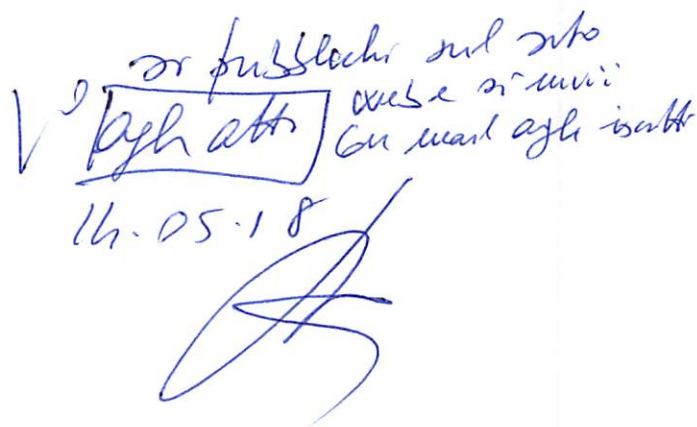 si pubblichi sul sito
V° agli atti web e si invii
con mail agli iscritti
14.05.18